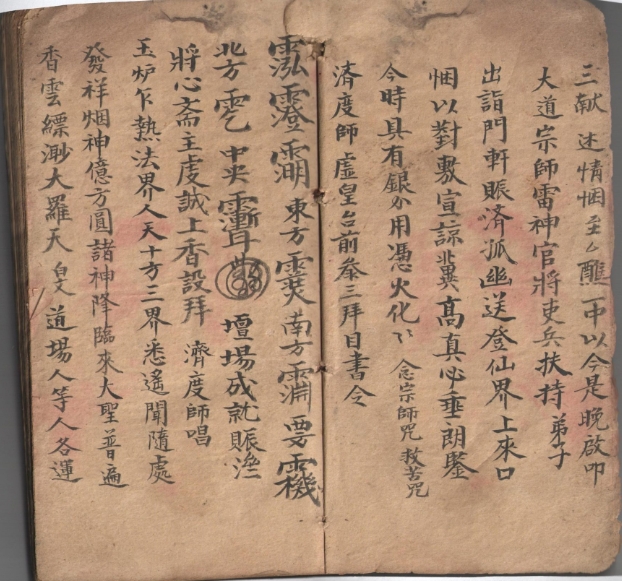 三献 述情悃至々醮一中以今是晚啟叩
大道宗師雷神官將吏兵扶持弟子
出詣門軒賑済孤幽送登仙界上來口
悃以對敷宣諒冀高真必垂朗鑒
今時具有銀分用憑火化 念宗師咒 救苦咒
済度師虛皇台前叅三拜日書令
東方 南方
北方 中央 壇場成就賑済
將心斋主虔誠上香設拜 濟度師唱
玉炉乍熱法界人天十方三界悉遙聞隨處
發祥烟神億方圓諸神降臨來大聖普遍
香雲縹渺大羅天 道場人等人各運